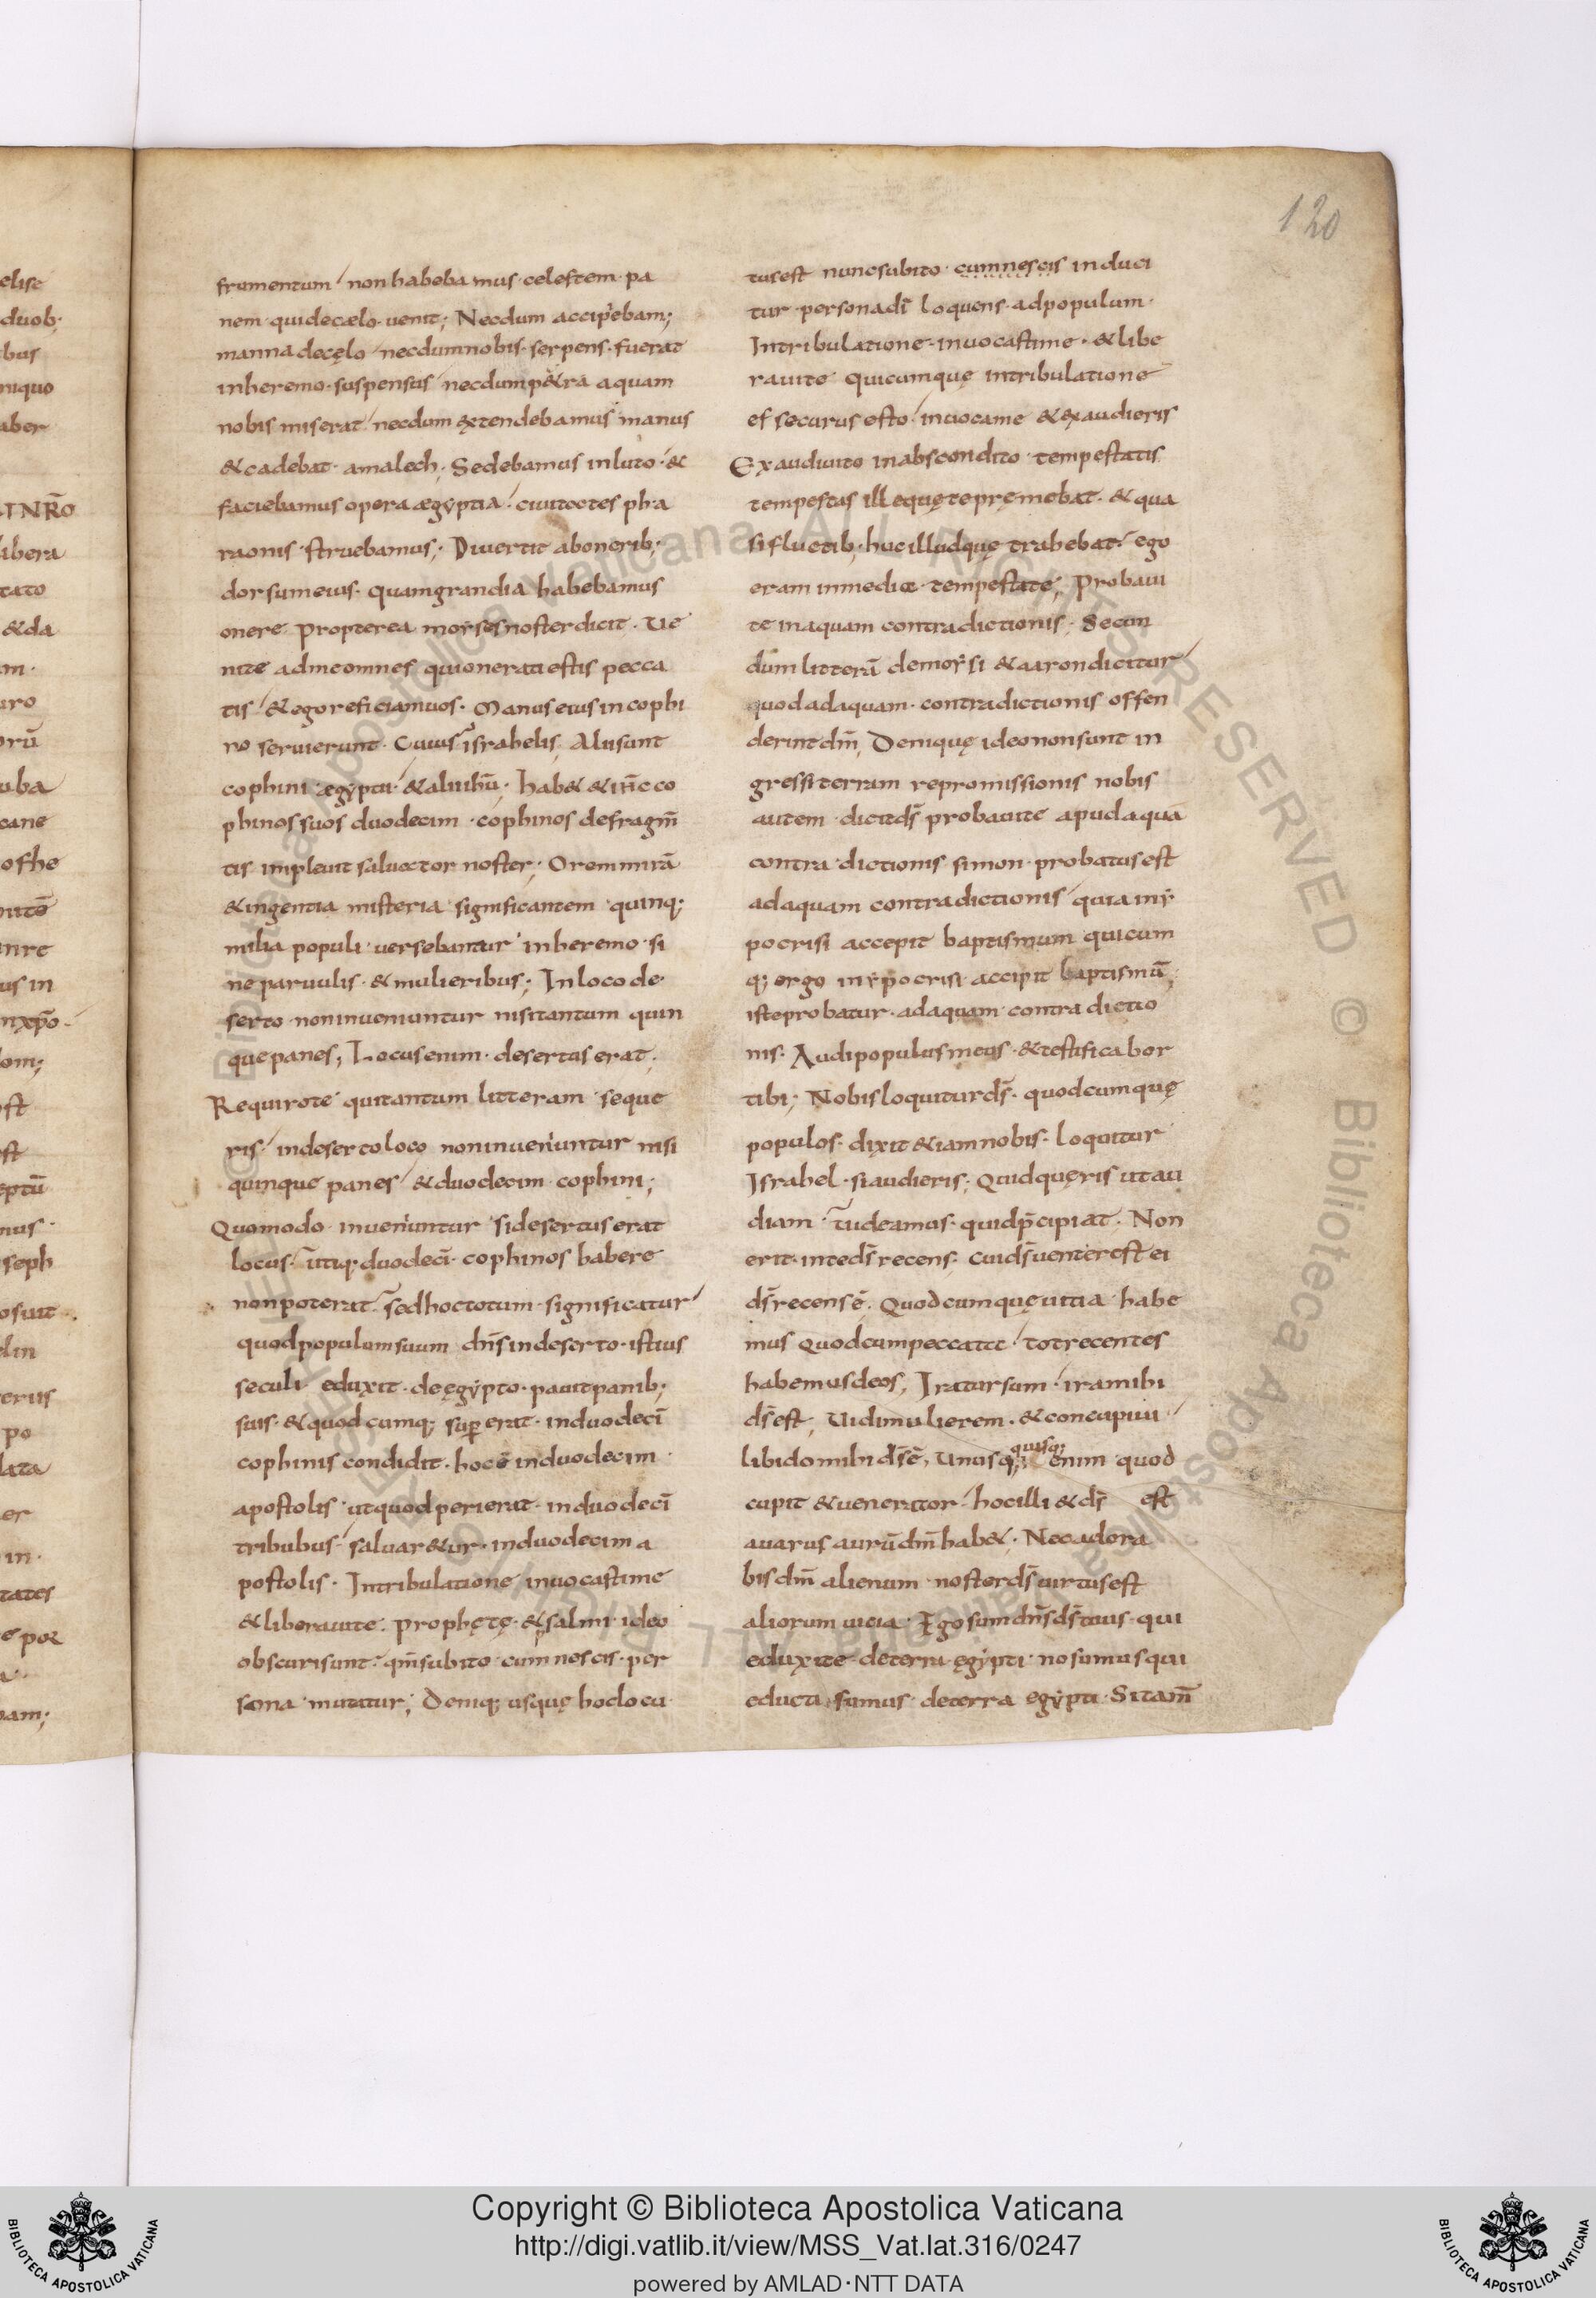 120
elise
duob;
bus
niquo
aber
INR̄O
libera
tato
&da
m·
uro
orū
uba
cane
ofhe
mitē
inre
us in
nxp̄o·
lom;
st
est
eptū
nus·
iseph
osuit·
elin
terus
po
lata
er
in·
tates
e por
a·
bam;
frumentum non habebamus· celestem· pa
nem· qui decælo· uenit; Necdum accipiebam;
manna decęlo necdumnobis· serpens· fuerat
inheremo· suspensus necdump&ra aquam
nobis miserat necdum extendebamus manus
&cadebat· amalech; Sedebamus inluto· &
faciebamus opera ægyptia· ciuitates pha
raonis· struebamus; Diuertit abonerib;
dorsumeius· quamgrandia habebamus
onere· propterea moysesnosterdicit· Ue
nite admeomnes quioneratiestis pecca
tis &egoreficiamuos· Manuseiusincophi
no seruierunt· Cuius israhelis; Aliisunt
cophini ægypti· &aliihū· hab& &iñc co
phinossuos duodecim· cophinos defragm̄
tis impleuit saluator noster; Oremmirā
&ingentia misteria significantem quinq;
milia populi uersebantur inheremo· si
neparuulis· &mulieribus; Inlocode
serto noninueniuntur nisitantum quin
quepanes; Locusenim· desertus erat·
Requirote quitantum litteram seque
ris· indesertoloco noninueniuntur nisi
quinque panes &duodecim cophini;
Quomodo inueniuntur sidesertuserat
locus· utiq; duodeci· cophinos habere
nonpoterat· sedhoctotum· significatur
quodpopulumsuum dn̄sindeserto· istius
seculi eduxit· deęgypto· pauitpanib;
suis· &quodcumq; superat· induodecī
cophinis condidit· hocē induodecim
apostolis utquodperierat· induodecī
tribubus saluar&ur· induodecim a
postolis· Intribulatione inuocastime
&liberauite· prophętę· &psalmi· ideo
obscurisunt· qm̄subito· cum nescis· per
sona mutatur; Deniq; usquę hoclocu
tusest nuncsubito· cumnescis induci
tur· personadī loquens· adpopulum·
Intribulatione· inuocastime· &libe
rauite quicumquę intribulatione
es securus esto inuocame &exaudieris
Exaudiuite inabscondito· tempestatis
tempestas illequętepręmebat· &qua
sifluctib; hucilludquę trahebat· ego
eram inmedia· tempestate; Probaui
te inaquam contradictionis· Secun
dumlitterā demoysi &aarondicitur
quodadaquam· contradictionis offen
derintdm̄; Deniquę ideononsunt in
gressiterram repromissionis nobis
autem diciturds̄ probauite apudaquā
contra dictionis simon· probatusest
adaquam contradictionis quia iny
pocrisi accepit baptismum quicum
q; ergo inypocrisi· accipit baptismū;
isteprobatur· adaquam contra dictio
nis· Audipopulusmeus· &testificabor
tibi; Nobisloquiturds̄· quodcumquę
populos· dixit &iamnobis· loquitur
Israhel· siaudieris; Quidquęris utau
diam uideamus· quidp̄cipiat· Non
erit· inteds̄ recens· cuids̄uenterest ei
ds̄recensē· Quodcumquęuitia habe
mus quodcumpeccata totrecentes
habemusdeos, Iratursum· iramihi
ds̄est, Uidimulierem· &concupiui
libidomihi ds̄ē, Unusq; quisq; enim quod
cupit &ueneratur hocilli &ds̄ est
auarus aurūdm̄hab&· Necadora
bis dm̄ alienum nosterds̄uirtusest
aliorum uicia· Egosumdn̄sds̄tuus· qui
eduxite deterra ęgypti· nosumusqui
educti sumus· deterra egypti· Sitam̄
Copyright © Biblioteca Apostolica Vaticana
http://digi.vatlib.it/view/MSS_Vat.lat.316/0247
powered by AMLAD·NTT DATA
BIBLIOTECA APOSTOLICA VATICANA
BIBLIOTECA APOSTOLICA VATICANA